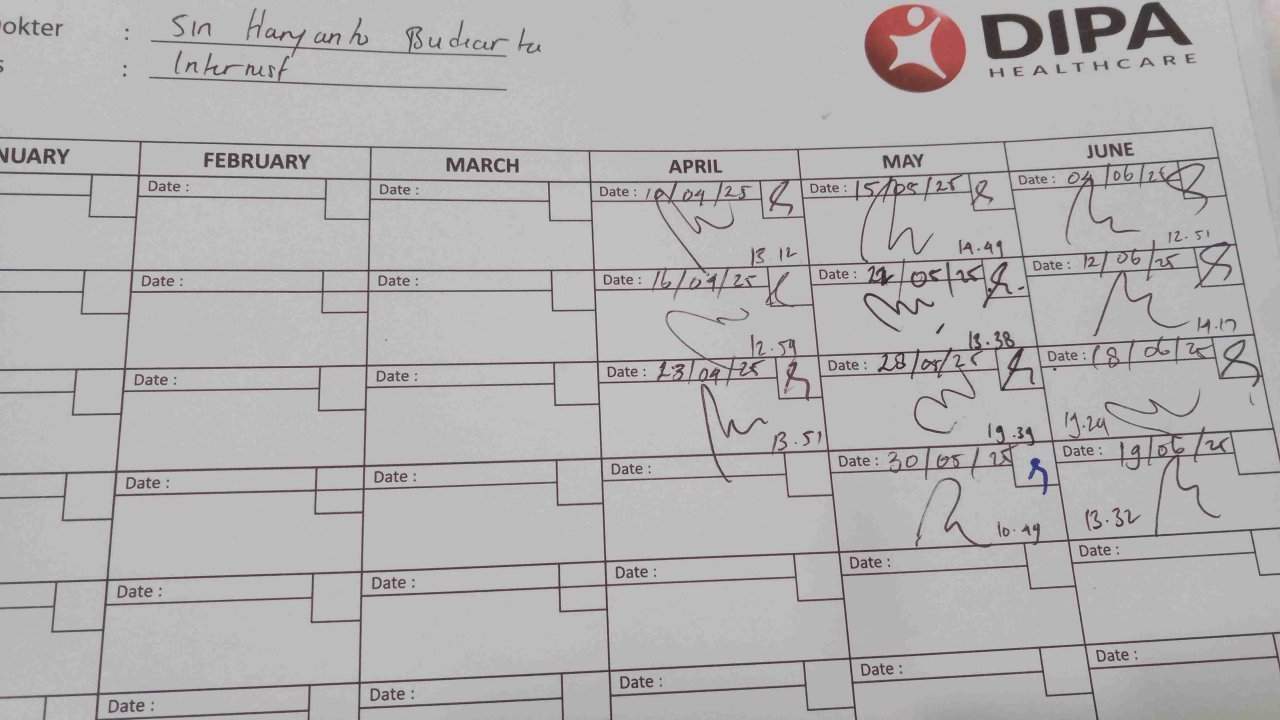 okter : Sin Haryanto Budiarta
s : Internist
DIPA
HEALTHCARE
NUARY FEBRUARY MARCH APRIL MAY JUNE
Date : Date : Date : 10/04/25 Date : 15/05/25 Date : 04/06/25
13.12 14.49 12.51
Date : Date : Date : 16/04/25 Date : 22/05/25 Date : 12/06/25
12.59 13.38 14.17
Date : Date : Date : 23/04/25 Date : 28/05/25 Date : 18/06/25
13.51 19.39 19.24
Date : Date : Date : Date : 30/05/25 Date : 19/06/25
10.49 13.32
Date : Date : Date : Date : Date :
Date : Date : Date : Date : Date :